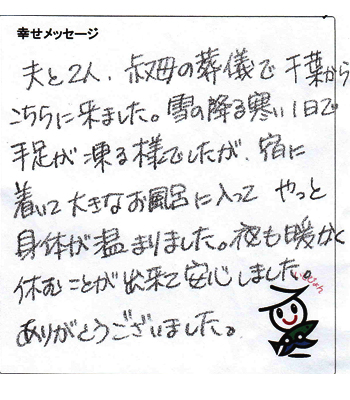 幸せメッセージ
夫と2人、叔母の葬儀で千葉から
こちらに来ました。雪の降る寒い1日で
手足が凍る様でしたが、宿に
着いて大きなお風呂に入って やっと
身体が温まりました。夜も暖かく
休むことが出来て安心しました。
ありがとうございました。